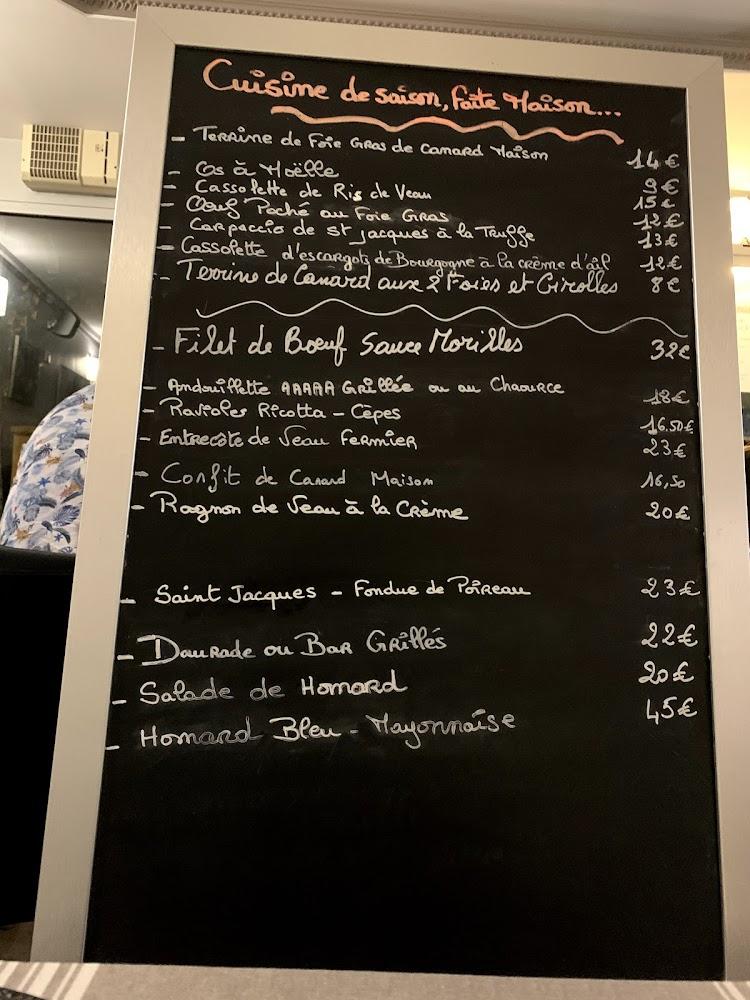 Cuisine de saison, faite Maison...
- Terrine de Foie Gras de Canard Maison 14€
- Os à Moëlle 9€
- Cassolette de Ris de Veau 15€
- Oeuf Poché au Foie Gras 12€
- Carpaccio de St Jacques à la Truffe 13€
- Cassolette d'escargots de Bourgogne à la crème d'ail 12€
- Terrine de Canard aux 2 Foies et Girolles 8€
- Filet de Boeuf Sauce Morilles 32€
- Andouillette AAAAA Grillée ou au Chaource 18€
- Ravioles Ricotta - Cèpes 16.50€
- Entrecôte de Veau Fermier 23€
- Confit de Canard Maison 16,50
- Rognon de Veau à la Crème 20€
- Saint Jacques - Fondue de Poireau 23€
- Daurade ou Bar Grillés 22€
- Salade de Homard 20€
- Homard Bleu - Mayonnaise 45€